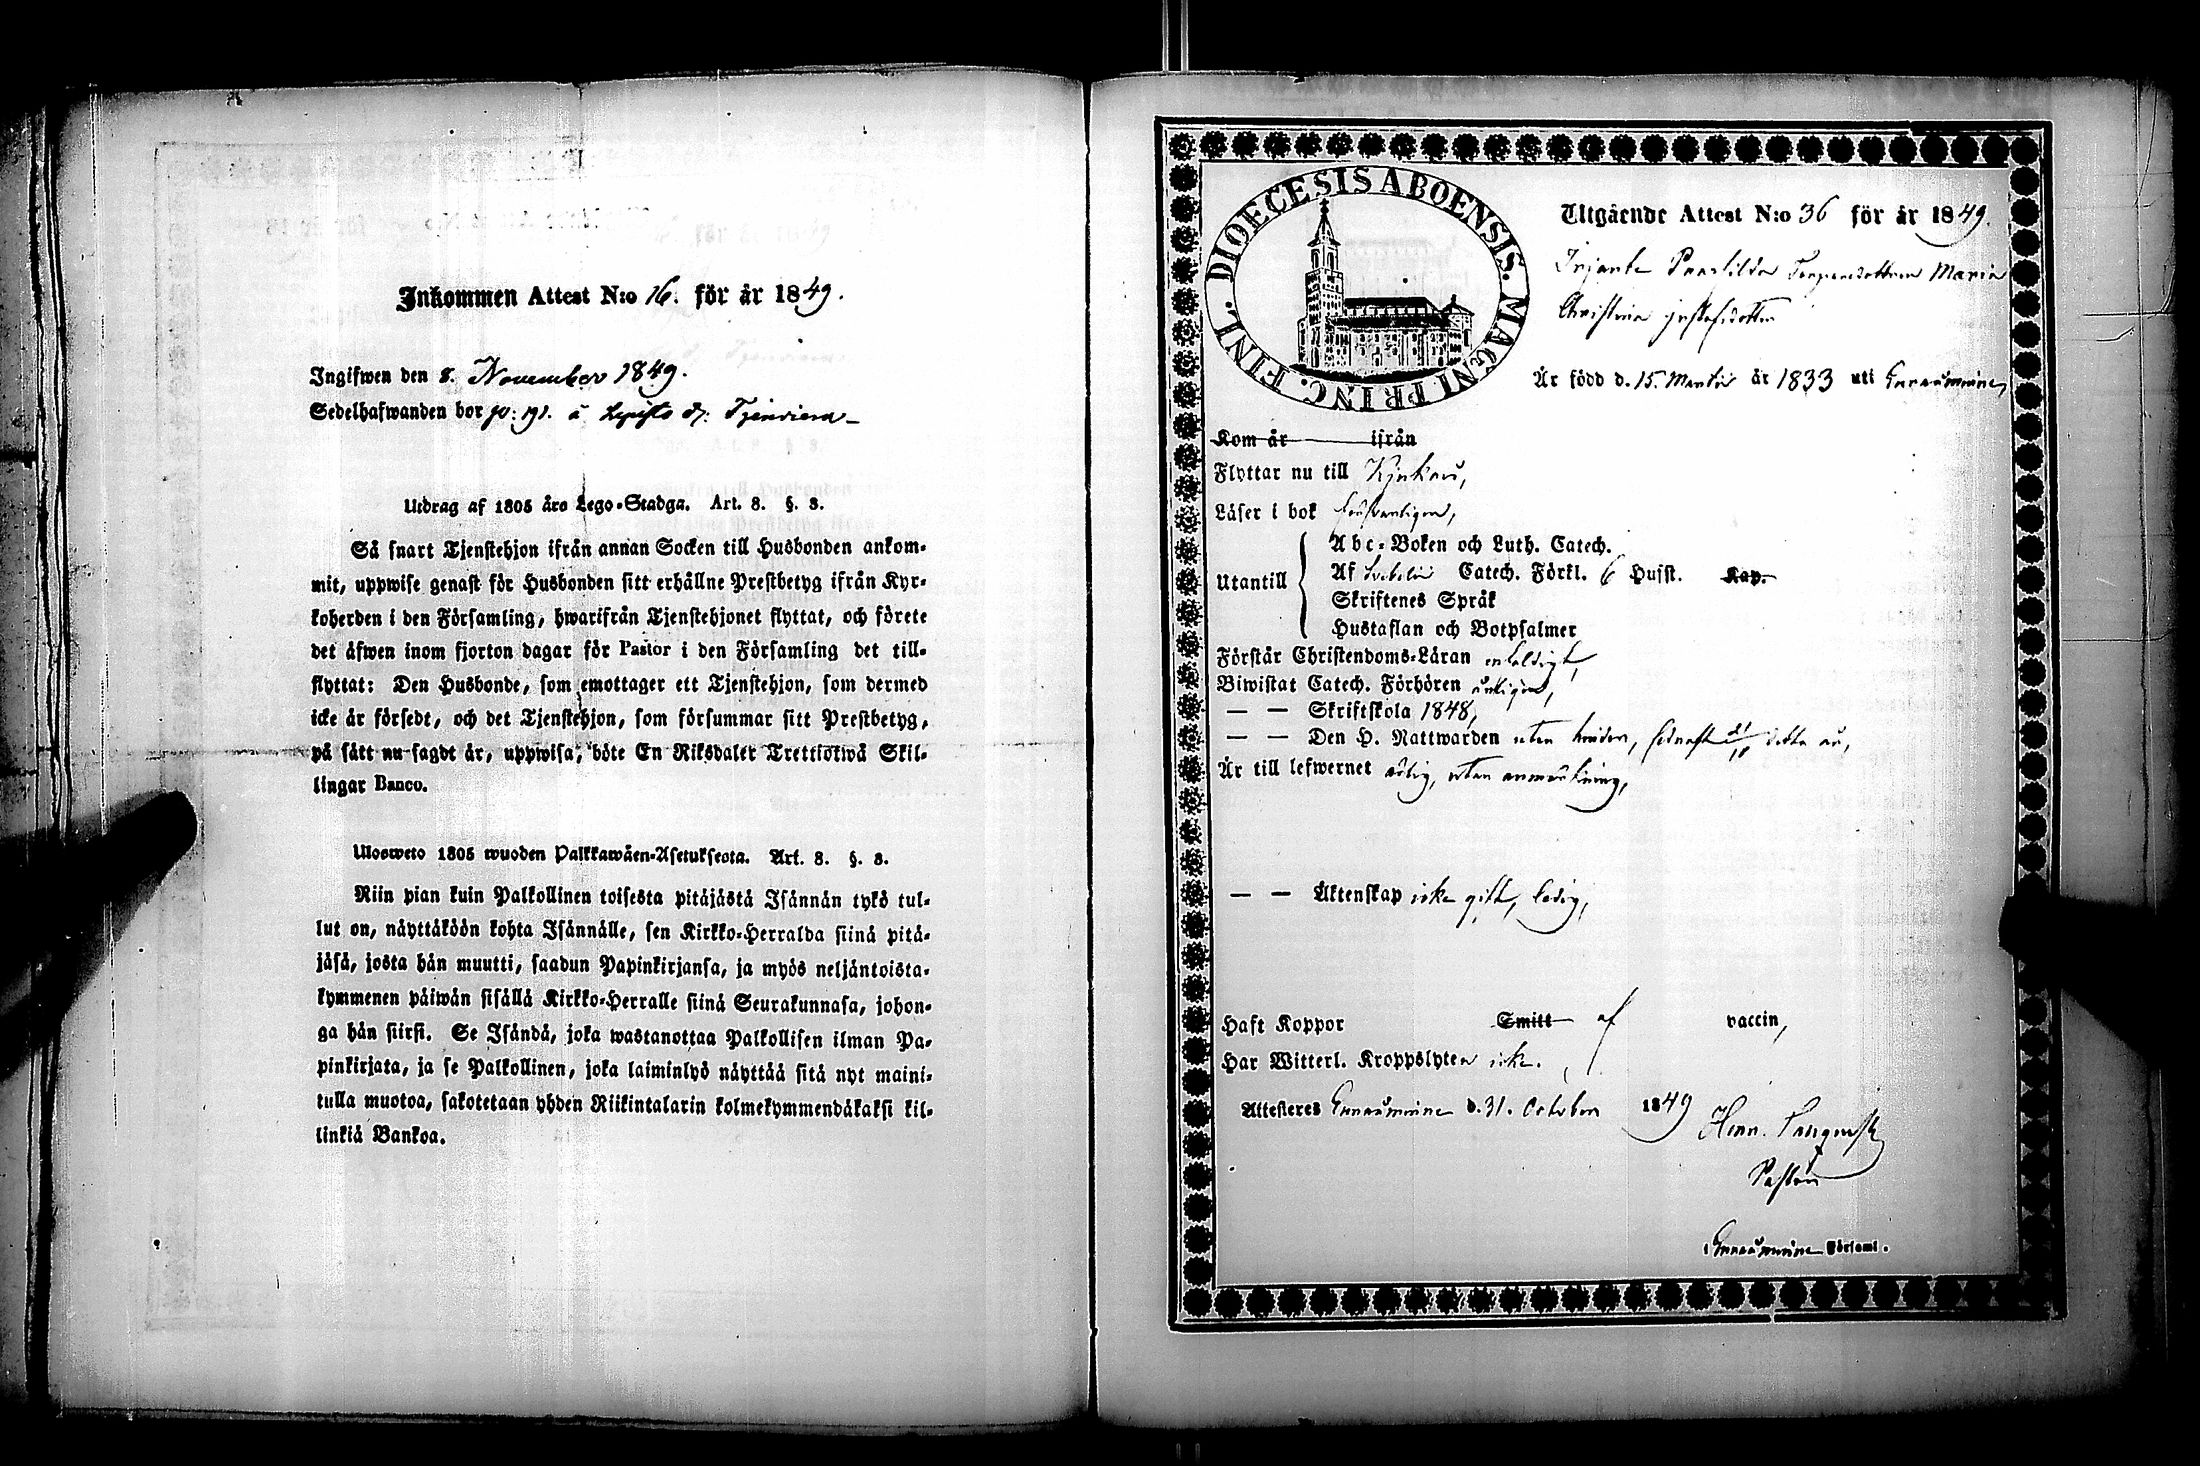 Inkommen Attest N:o 16. för år 1849.
Ingifwen den 8. November 1849.
Sedelhafwanden bor på: à
Utdrag af 1805 års Lego-Stadga. Art. 8. §. 8.
Så snart Tjenstehjon ifrån annan Socken till Husbonden ankom-
mit, uppwise genast för Husbonden sitt erhållne Prestbetyg ifrån Kyr-
koherden i den Församling, hwarifrån Tjenstehjonet flyttat, och förete
det äfwen inom fjorton dagar för Pastor i den Församling det till-
flyttat: Den Husbonde, som emottager ett Tjenstehjon, som dermed
icke är försedt, och det Tjenstehjon, som försummar sitt Prestbetyg,
på sätt nu sagdt är, uppwisa, böte En Riksdaler Trettiotwå Skil-
lingar Banco.
Ulosweto 1805 wuoden Palkkawäen-Asetuksesta. Art. 8. §. 8.
Niin pian kuin Palkollinen toisesta pitäjästä Isännän tykö tul-
lut on, näyttäköön kohta Isännälle, sen Kirkko-Herralda siinä pitä-
jäsä, josta hän muutti, saadun Papinkirjansa, ja myös neljäntoista-
kymmenen päiwän sisällä Kirkko-Herralle siinä Seurakunnasa, johon-
ga hän siirsi. Se Isändä, joka wastanottaa Palkollisen ilman Pa-
pinkirjata, ja se Palkollinen, joka laiminlyö näyttää sitä nyt maini-
tulla muotoa, sakotetaan yhden Riikintalarin kolmekymmendäkaksi kil-
linkiä Bankoa.
DIOECESIS ABOENSIS. MAGNI PRINC. FINL.
Utgående Attest N:o 36 för år 1849.
Maria
Christina Gustafsdotter
Är född d. 15. Martii år 1833 uti Ennäsminne,
Kom år ifrån
Flyttar nu till Kjukais,
Läser i bok försvarligen,
Utantill
Abc-Boken och Luth. Catech.
Af Svebelii Catech. Förkl. 6 Hufst. Kap.
Skriftenes Språk
Hustaflan och Botpsalmer
Förstår Christendoms-Läran enfaldigt,
Biwistat Catech. Förhören årligen,
— — Skriftskola 1848,
— — Den H. Nattwarden utan hinder, sednast detta år,
Är till lefwernet ärlig, utan anmärkning,
— — Äktenskap icke gift, ledig,
Haft Koppor Smitt af vaccin,
Har Witterl. Kroppslyten icke.
Attesteres d. 31. October 1849
Henr.
Pastor
i Församl.